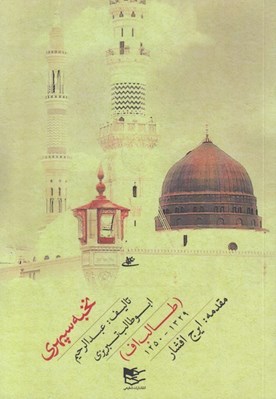 نخبه سپهری
تالیف: عبدالرحیم
ابوطالب تبریزی
(طالب‌اف)
۱۲۵۰ - ۱۳۲۹
مقدمه: ایرج افشار